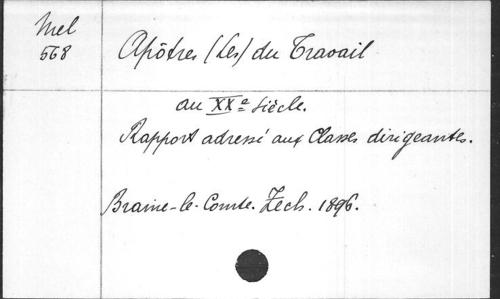 Mel
568
Apôtres (Les) du Travail
au XXe Siècle.
Rapport adressé aux Classes dirigeantes.
Braine-le-Comte. Zech. 1896.